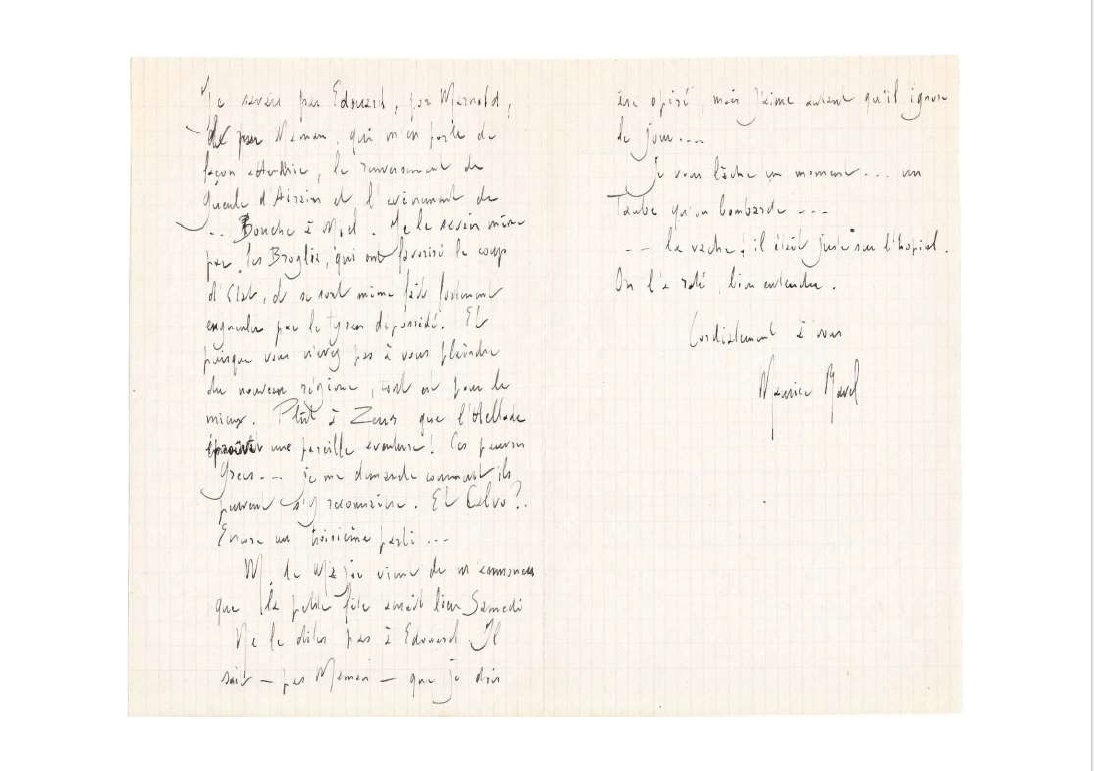 Je savais par Edouard, par Marnold,
par Maman, qui m'en parle de
façon attendrie, le renversement de
Gueule d'Airain et l'avènement de
... Bouche à Miel. Je le savais même
par les Broglie, qui ont favorisé le coup
d'Etat, et se sont même fait fortement
engueuler par le tyran dépossédé. Et
puisque vous n'avez pas à vous plaindre
du nouveau régime, tout est pour le
mieux. Plût à Zeus que l'Hellade
une pareille aventure! Ces pauvres
Grecs... je me demande comment ils
peuvent s'y reconnaître. Et Calvo?.
Encore un troisième parti...
M. le Major vient de m'annoncer
que la petite fête aurait lieu Samedi
Ne le dites pas à Edouard Il
sait — par Maman — que je dois
être opéré, mais j'aime autant qu'il ignore
le jour...
Je vous lâche un moment... un
Taube qu'on bombarde ---
-- la vache! il était juste sur l'hopital.
On l'a raté, bien entendu.
Cordialement à vous
Maurice Ravel